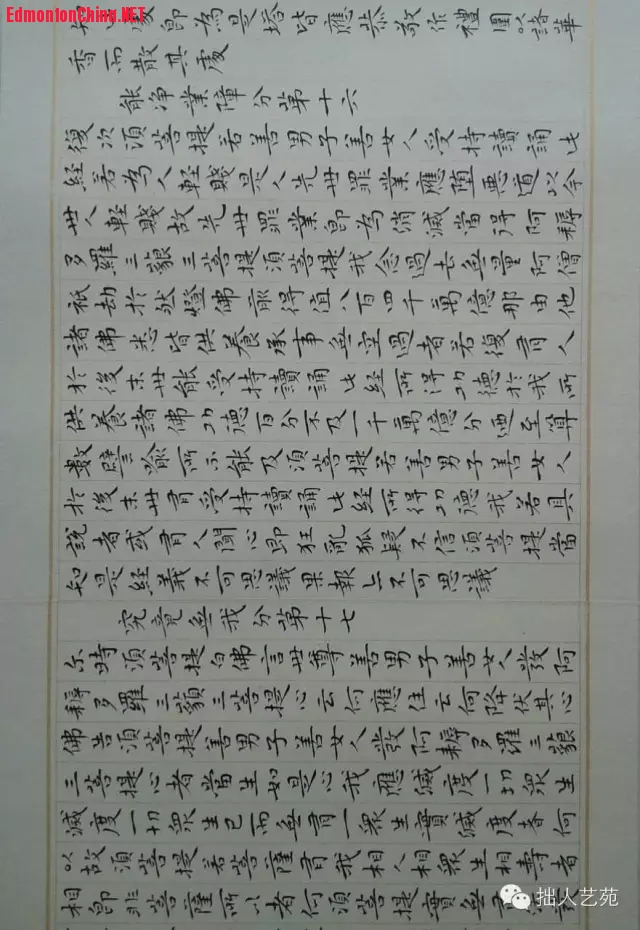 EdmontonChina.NET
處即為是塔皆應恭敬作禮圍以諸華
香而散其處
能净業障分第十六
復次須菩提若善男子善女人受持讀誦此
經若為人輕賤是人先世罪業應堕惡道以今
世人輕賤故先世罪業即為消滅當得阿耨
多羅三藐三菩提須菩提我念過去無量阿僧
祇劫於然燈佛前得值八百四千萬億那由他
諸佛悉皆供養承事無空過者若復有人
於後末世能受持讀誦此經所得功德於我所
供養諸佛功德百分不及一千萬億分迺至算
數譬喻所不能及須菩提若善男子善女人
於後末世有受持讀誦此經所得功德我若具
說者或有人聞心即狂亂狐疑不信須菩提當
知是經義不可思議果報亦不可思議
究竟無我分第十七
尔時須菩提白佛言世尊善男子善女人發阿
耨多羅三藐三菩提心云何應住云何降伏其心
佛告須菩提善男子善女人發阿耨多羅三藐
三菩提心者當生如是心我應滅度一切衆生
滅度一切衆生已而無有一衆生實滅度者何
以故須菩提若菩薩有我相人相衆生相壽者
相即非菩薩所以者何須菩提實無有
拙人艺苑